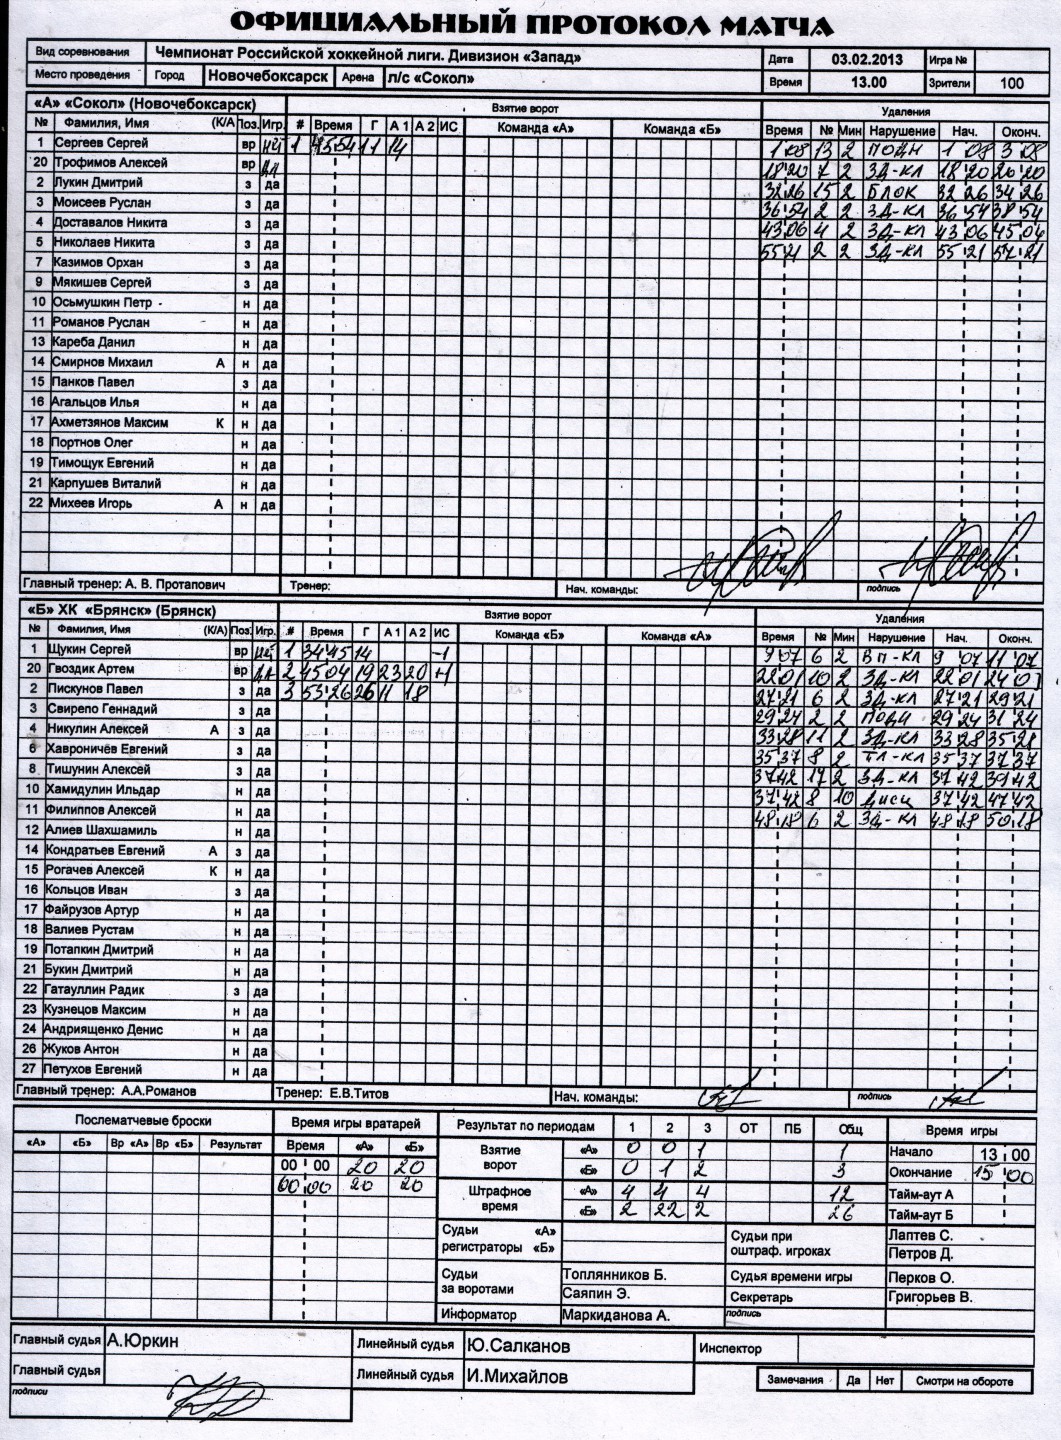 ОФИЦИАЛЬНЫЙ ПРОТОКОЛ МАТЧА
Вид соревнования Чемпионат Российской хоккейной лиги. Дивизион «Запад» Дата 03.02.2013 Игра №
Место проведения Город Новочебоксарск Арена л/с «Сокол» Время 13.00 Зрители 100
«А» «Сокол» (Новочебоксарск) Взятие ворот Удаления
№ Фамилия, Имя (К/А) Поз. Игр. # Время Г А 1 А 2 ИС Команда «А» Команда «Б» Время № Мин Нарушение Нач. Оконч.
1 Сергеев Сергей вр 1 45 54 11 14 1 08 13 2 ПОДН 1 08 3 08
20 Трофимов Алексей вр да 18 20 7 2 ЗД-КЛ 18 20 20 20
2 Лукин Дмитрий з да 32 26 15 2 БЛОК 32 26 34 26
3 Моисеев Руслан з да 36 54 2 2 ЗД-КЛ 36 54 38 54
4 Доставалов Никита з да 43 06 4 2 ЗД-КЛ 43 06 45 04
5 Николаев Никита з да 55 21 2 2 ЗД-КЛ 55 21 57 21
7 Казимов Орхан з да
9 Мякишев Сергей з да
10 Осьмушкин Петр н да
11 Романов Руслан н да
13 Кареба Данил н да
14 Смирнов Михаил А н да
15 Панков Павел з да
16 Агальцов Илья н да
17 Ахметзянов Максим К н да
18 Портнов Олег н да
19 Тимощук Евгений н да
21 Карпушев Виталий н да
22 Михеев Игорь А н да
Главный тренер: А. В. Протапович Тренер: Нач. команды: подпись
«Б» ХК «Брянск» (Брянск) Взятие ворот Удаления
№ Фамилия, Имя (К/А) Поз. Игр. # Время Г А 1 А 2 ИС Команда «Б» Команда «А» Время № Мин Нарушение Нач. Оконч.
1 Щукин Сергей вр 1 34 45 14 -1 9 07 6 2 ВП-КЛ 9 07 11 07
20 Гвоздик Артем вр да 2 45 04 19 23 20 +1 22 01 10 2 ЗД-КЛ 22 01 24 01
2 Пискунов Павел з да 3 53 26 26 11 18 27 21 6 2 ЗД-КЛ 27 21 29 21
3 Свирепо Геннадий з да 29 24 2 2 ПОДН 29 24 31 24
4 Никулин Алексей А з да 33 28 11 2 ЗД-КЛ 33 28 35 28
6 Хавроничёв Евгений з да 35 37 8 2 35 37 37 37
8 Тишунин Алексей з да 37 42 17 2 ЗД-КЛ 37 42 39 42
10 Хамидулин Ильдар н да 37 42 8 10 Дисц 37 42 47 42
11 Филиппов Алексей н да 48 18 6 2 ЗД-КЛ 48 18 50 18
12 Алиев Шахшамиль н да
14 Кондратьев Евгений А з да
15 Рогачев Алексей К н да
16 Кольцов Иван з да
17 Файрузов Артур н да
18 Валиев Рустам н да
19 Потапкин Дмитрий н да
21 Букин Дмитрий н да
22 Гатауллин Радик з да
23 Кузнецов Максим н да
24 Андриященко Денис н да
26 Жуков Антон н да
27 Петухов Евгений н да
Главный тренер: А.А.Романов Тренер: Е.В.Титов Нач. команды: подпись
Послематчевые броски Время игры вратарей Результат по периодам 1 2 3 ОТ ПБ Общ Время игры
«А» «Б» Вр «А» Вр «Б» Результат Время «А» «Б» Взятие ворот «А» 0 0 1 1 Начало 13 00
00 00 20 20 «Б» 0 1 2 3 Окончание 15 00
60 00 20 20 Штрафное время «А» 4 4 4 12 Тайм-аут А
«Б» 2 22 2 26 Тайм-аут Б
Судьи регистраторы «А» «Б» Судьи при оштраф. игроках Лаптев С.
Петров Д.
Судьи за воротами Топлянников Б. Судья времени игры Перков О.
Саяпин Э. Секретарь Григорьев В.
Информатор Маркиданова А. подпись
Главный судья А.Юркин Линейный судья Ю.Салканов Инспектор
Главный судья Линейный судья И.Михайлов Замечания Да Нет Смотри на обороте
подписи